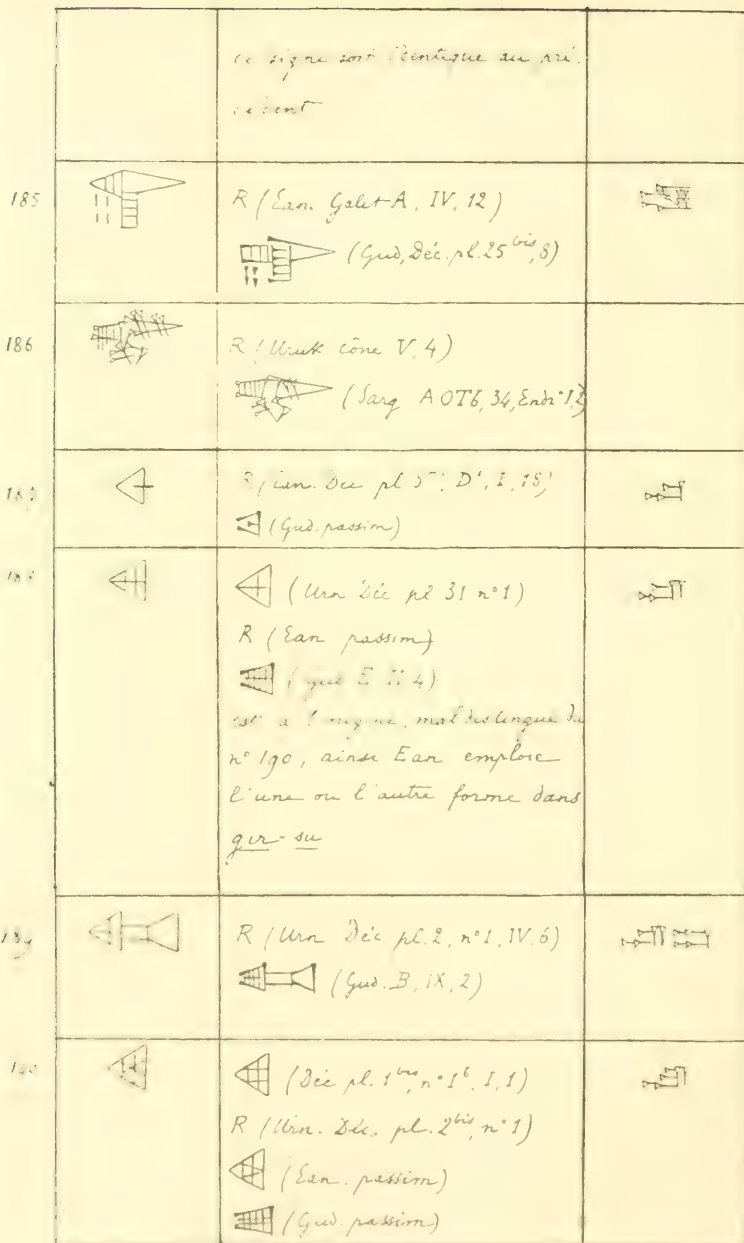 ce signe soit identique au pré-
cédent
185
R (Ean. Galet A, IV, 12)
(Gud, Déc. pl. 25 bis, 8)
186
R (Uruk cône V, 4)
(Sarg A OT6, 34,
187
Déc pl D', I, 18)
(Gud. passim)
188
(Urn Déc pl 31 n°1)
R (Ean passim)
4)
est à l'origine, mal distingué du
n° 190, ainsi Ean emploie
l'une ou l'autre forme dans
gir-su
189
R (Urn Déc pl. 2, n°1, IV. 6)
(Gud. B, IX, 2)
190
(Déc pl. 1 bis, n° 1 b, I, 1)
R (Urn. Déc. pl. 2 bis, n° 1)
(Ean. passim)
(Gud. passim)